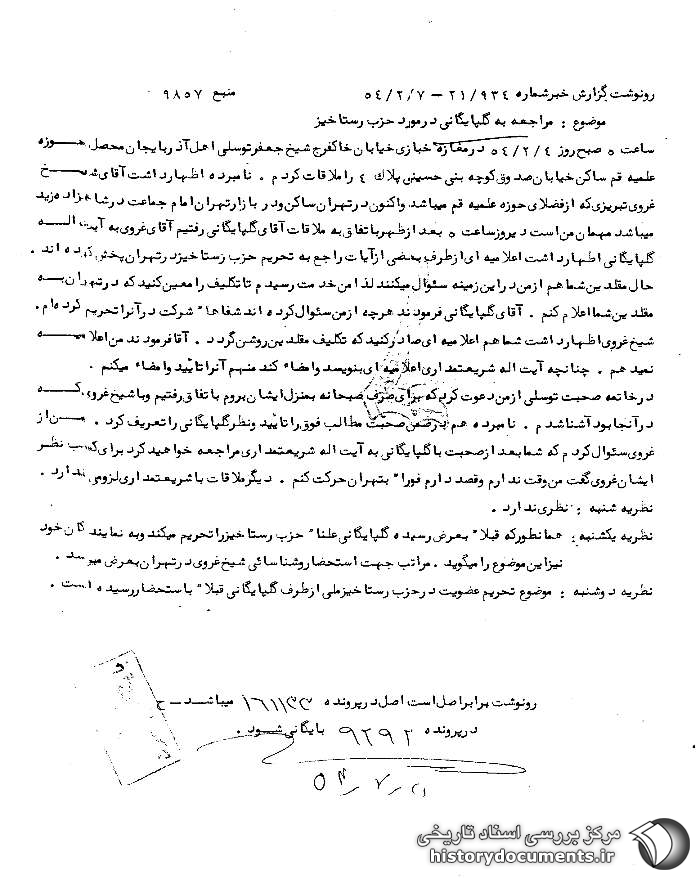 رونوشت گزارش خبر شماره ۲۱/۹۳۴ – ۵۴/۲/۷ منبع ۹۸۵۷
موضوع : مراجعه به گلپایگانی در مورد حزب رستاخیز
ساعت ۵ صبح روز ۵۴/۲/۴ در مغازه خبازی خیابان خاکفرج شیخ جعفر توسلی اهل آذربایجان محصل حوزه
علمیه قم ساکن خیابان صدوق کوچه بنی حسینی پلاک ٤ را ملاقات کردم . نامبرده اظهار داشت آقای شیخ
غروی تبریزی که از فضلای حوزه علمیه قم میباشد واکنون در تهران ساکن ودر بازار تهران امام جماعت در شاهزاده زید
میباشد مهمان من است دیروز ساعت ۵ بعد از ظهر باتفاق به ملاقات آقای گلپایگانی رفتیم آقای غروی به آیت الله
گلپایگانی اظهار داشت اعلامیه ای از طرف بعضی از آیات راجع به تحریم حزب رستاخیز در تهران پخش کرده اند .
حال مقلدین شما هم از من در این زمینه سئوال میکنند لذا من خدمت رسیدم تا تکلیف را معین کنید که در تهران به
مقلدین شما اعلام کنم . آقای گلپایگانی فرمودند هرچه از من سئوال کرده اند شفاها" شرکت در آنرا تحریم کرده ام .
شیخ غروی اظهار داشت شما هم اعلامیه ای صادر کنید که تکلیف مقلدین روشن گردد . آقا فرمودند من اعلامیه
نمیدهم . چنانچه آیت اله شریعتمداری اعلامیه ای بنویسد وامضاء کند منهم آنرا تأیید وامضاء میکنم .
در خاتمه صحبت توسلی از من دعوت کرد که برای صرف صبحانه بمنزل ایشان بروم باتفاق رفتیم وبا شیخ غروی که
در آنجا بود آشنا شدم . نامبرده هم در ضمن صحبت مطالب فوق را تأیید ونظر گلپایگانی را تعریف کرد . من از
غروی سئوال کردم که شما بعد از صحبت با گلپایگانی به آیت اله شریعتمداری مراجعه خواهید کرد برای کسب نظر
ایشان غروی گفت من وقت ندارم وقصد دارم فورا" بتهران حرکت کنم . دیگر ملاقات با شریعتمداری لزومی ندارد .
نظریه شنبه : نظری ندارد .
نظریه یکشنبه : همانطور که قبلا" بعرض رسیده گلپایگانی علنا" حزب رستاخیز را تحریم میکند وبه نمایندگان خود
نیز این موضوع را میگوید . مراتب جهت استحضار وشناسائی شیخ غروی در تهران بعرض میرسد .
نظریه دوشنبه : موضوع تحریم عضویت در حزب رستاخیز ملی از طرف گلپایگانی قبلا" باستحضار رسیده است .
رونوشت برابر اصل است اصل در پرونده ۱۶۱۱۳۳ میباشد – ح
در پرونده ۹۲۹۲ بایگانی شود .
مرکز بررسی اسناد تاریخی
historydocuments.ir